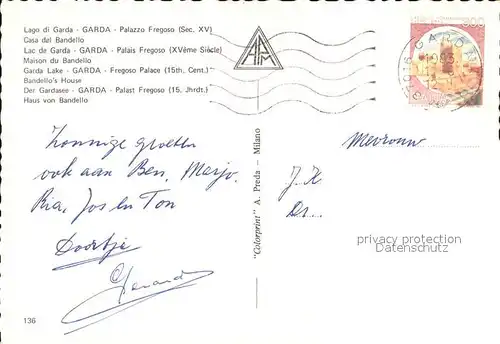 Lago di Garda - GARDA - Palazzo Fregoso (Sec. XV)
Casa del Bandello
Lac de Garda - GARDA - Palais Fregoso (XVème Siècle)
Maison du Bandello
Garda Lake - GARDA - Fregoso Palace (15th. Cent.)
Bandello's House
Der Gardasee - GARDA - Palast Fregoso (15. Jhrdt.)
Haus von Bandello
Zonnige groeten
ook aan Ben, Marjo,
Ria, Jos en Ton
Doortje
Gerard
136
"Colorprint" A. Preda - Milano
300
Mevrouw
J.K
Dr...
privacy protection
Datenschutz